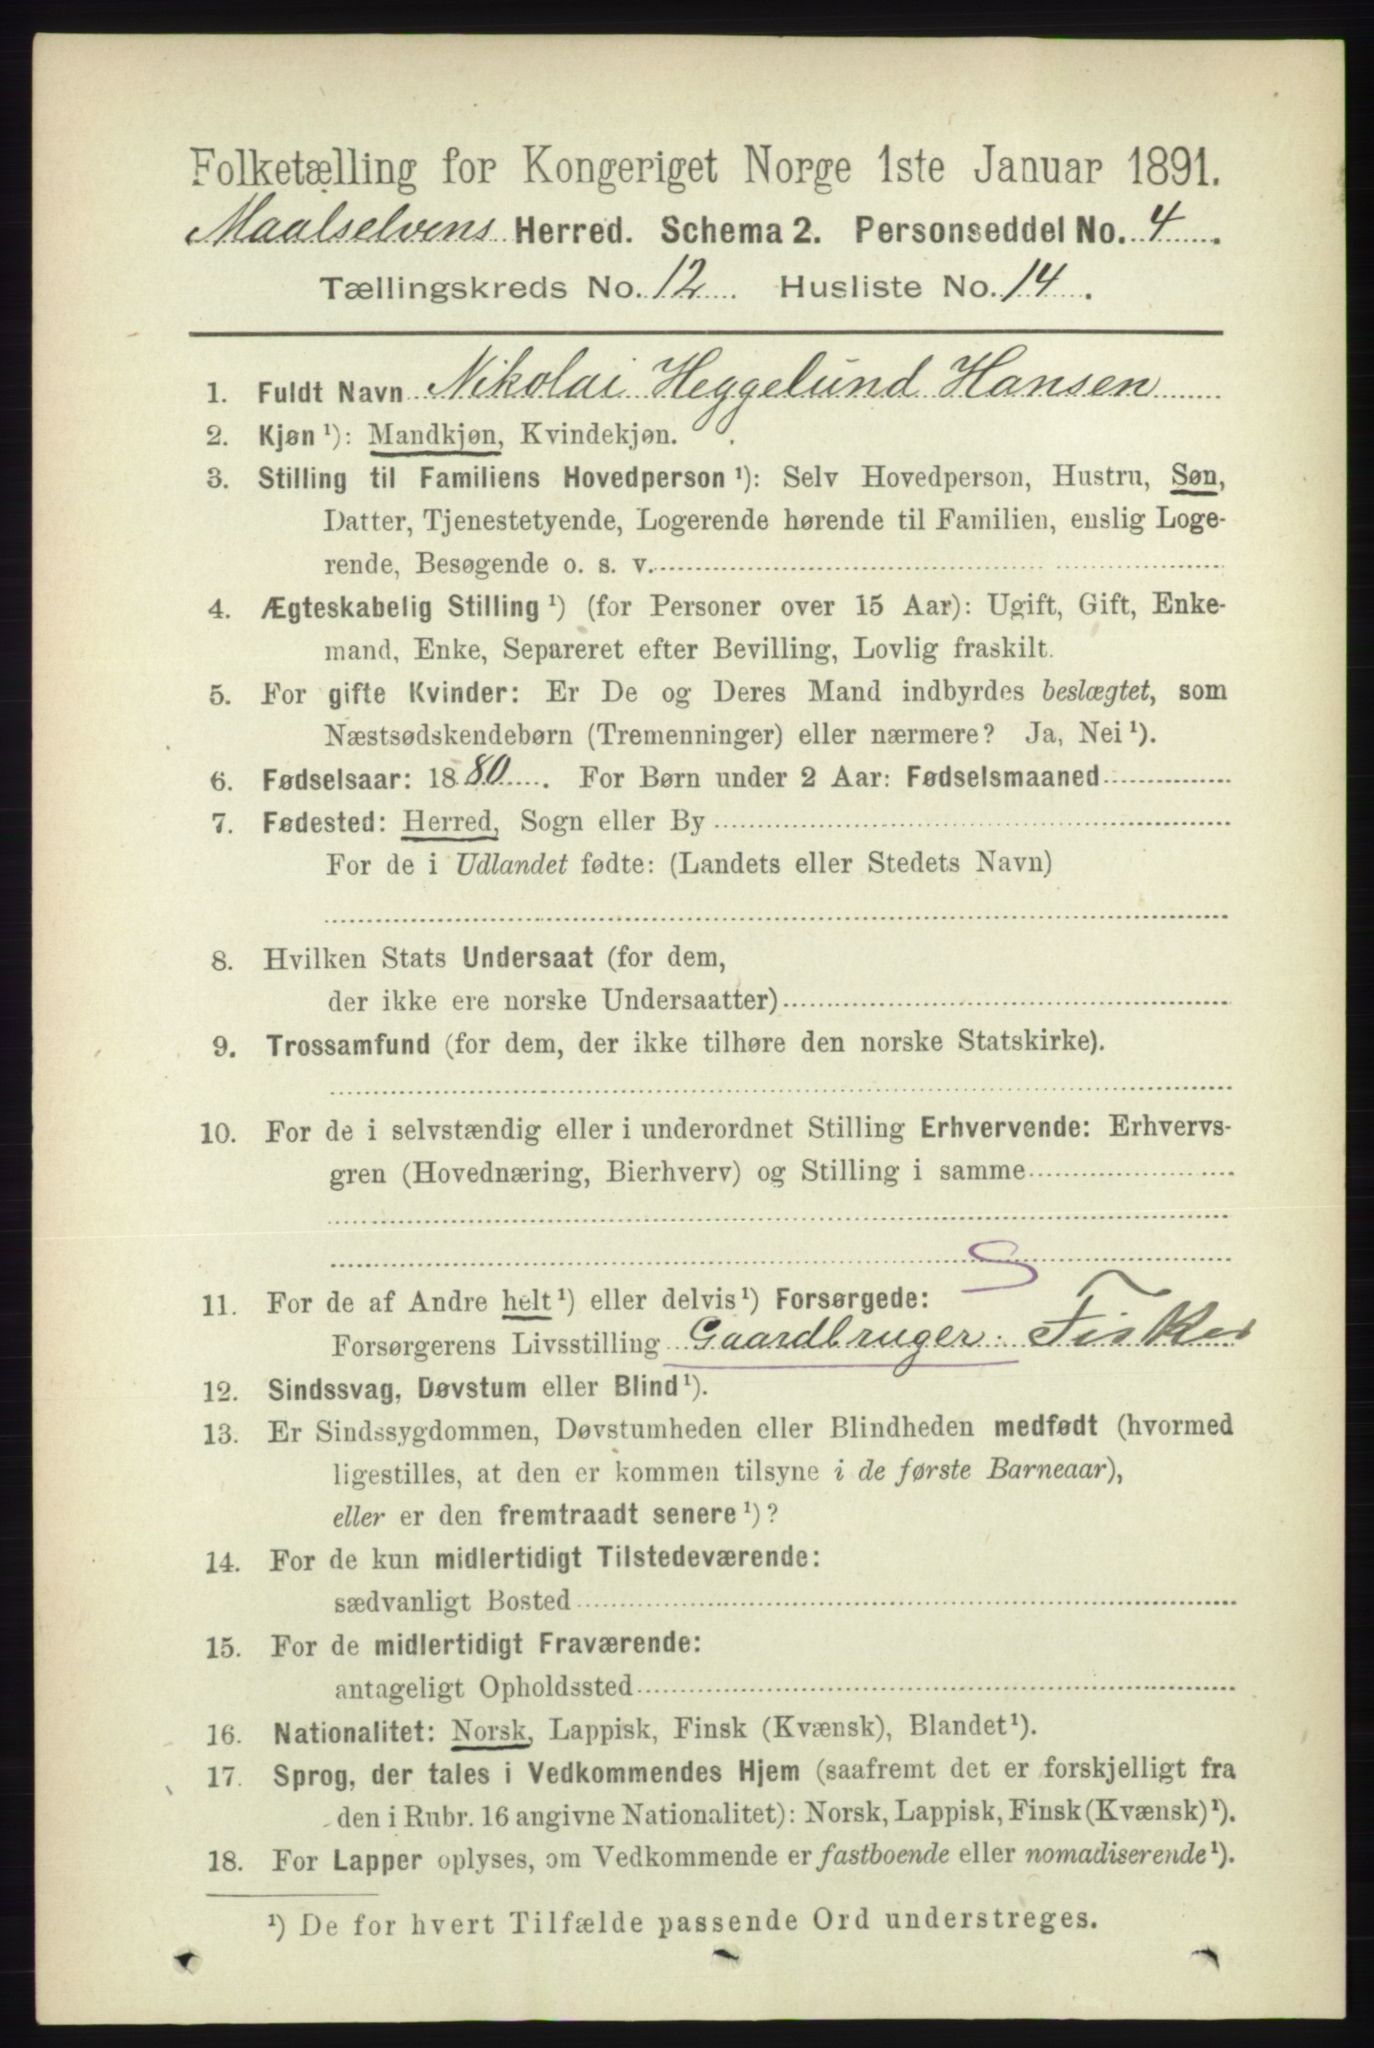 Folketælling for Kongeriget Norge 1ste Januar 1891.
Maalselvens Herred. Schema 2. Personseddel No. 4.
Tællingskreds No. 12. Husliste No. 14.
1. Fuldt Navn Nikolai Heggelund Hansen
2. Kjøn ¹): Mandkjøn, Kvindekjøn.
3. Stilling til Familiens Hovedperson ¹): Selv Hovedperson, Hustru, Søn,
Datter, Tjenestetyende, Logerende hørende til Familien, enslig Loge-
rende, Besøgende o. s. v.
4. Ægteskabelig Stilling ¹) (for Personer over 15 Aar): Ugift, Gift, Enke-
mand, Enke, Separeret efter Bevilling, Lovlig fraskilt.
5. For gifte Kvinder: Er De og Deres Mand indbyrdes beslægtet, som
Næstsødskendebørn (Tremenninger) eller nærmere? Ja, Nei ¹).
6. Fødselsaar: 1880. For Børn under 2 Aar: Fødselsmaaned
7. Fødested: Herred, Sogn eller By
For de i Udlandet fødte: (Landets eller Stedets Navn)
8. Hvilken Stats Undersaat (for dem,
der ikke ere norske Undersaatter)
9. Trossamfund (for dem, der ikke tilhøre den norske Statskirke).
10. For de i selvstændig eller i underordnet Stilling Erhvervende: Erhvervs-
gren (Hovednæring, Bierhverv) og Stilling i samme
S
11. For de af Andre helt ¹) eller delvis ¹) Forsørgede:
Forsørgerens Livsstilling Gaardbruger. Fisker
12. Sindssvag, Døvstum eller Blind ¹).
13. Er Sindssygdommen, Døvstumheden eller Blindheden medfødt (hvormed
ligestilles, at den er kommen tilsyne i de første Barneaar),
eller er den fremtraadt senere ¹)?
14. For de kun midlertidigt Tilstedeværende:
sædvanligt Bosted
15. For de midlertidigt Fraværende:
antageligt Opholdssted
16. Nationalitet: Norsk, Lappisk, Finsk (Kvænsk), Blandet ¹).
17. Sprog, der tales i Vedkommendes Hjem (saafremt det er forskjelligt fra
den i Rubr. 16 angivne Nationalitet): Norsk, Lappisk, Finsk (Kvænsk) ¹).
18. For Lapper oplyses, om Vedkommende er fastboende eller nomadiserende ¹).
¹) De for hvert Tilfælde passende Ord understreges.